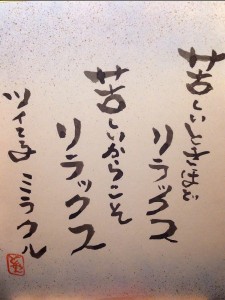 苦しいときほど
リラックス
苦しいからこそ
リラックス
ツイてる ミラクル